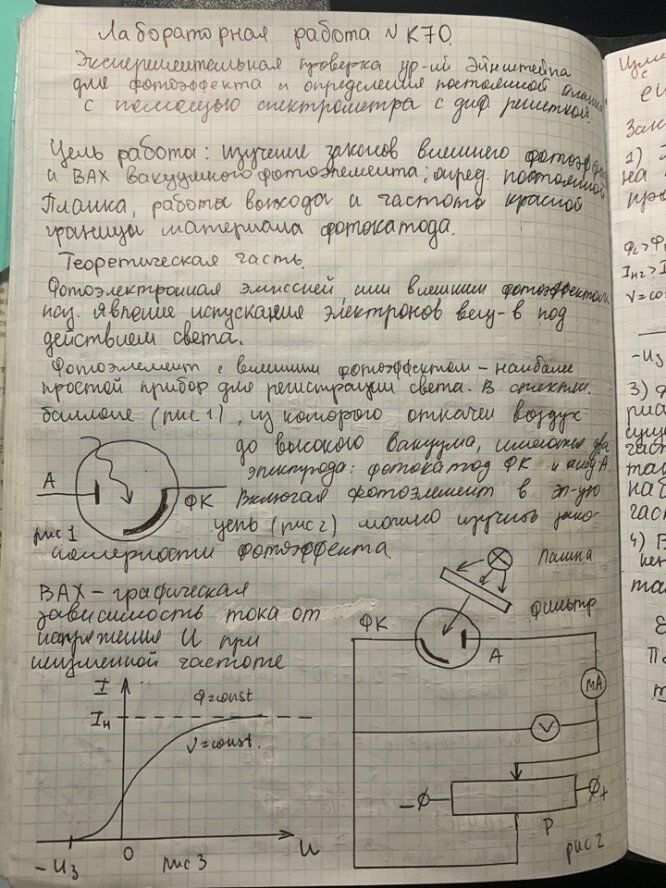 Лабораторная работа №К70.
Экспериментальная проверка ур-ий Эйнштейна
для фотоэффекта и определения постоянной Планка
с помощью спектрометра с диф решеткой.
Цель работа: изучение законов внешнего фотоэфф
и ВАХ вакуумного фотоэлемента; опред. постоянной
Планка, работы выхода и частоты красной
границы материала фотокатода.
Теоретическая часть.
Фотоэлектронная эмиссией или внешним фотоэффектом
наз. явление испускания электронов вещ-в под
действием света.
Фотоэлемент с внешним фотоэффектом - наиболее
простой прибор для регистрации света. В стеклян.
баллоне (рис 1), из которого откачен воздух
до высокого вакуума, имеются два
электрода: фотокатод ФК и анод А.
Включая фотоэлемент в эл-ую
цепь (рис 2) можно изучить зако-
номерности фотоэффекта
А
ФК
рис 1
ВАХ - графическая
зависимость тока от
напряжения U при
неизменной частоте
I
Iн
Ф=const
ν=const.
-Uз
0
рис 3
U
Лампа
фильтр
ФК
А
МА
V
-
+
Р
рис 2
с
ει
Зак
1)
на
про
Φ2>Φ1
Iн2>I
ν=con
-Uз
3) Ф
част
та
на
част
4) В
та
ε
П